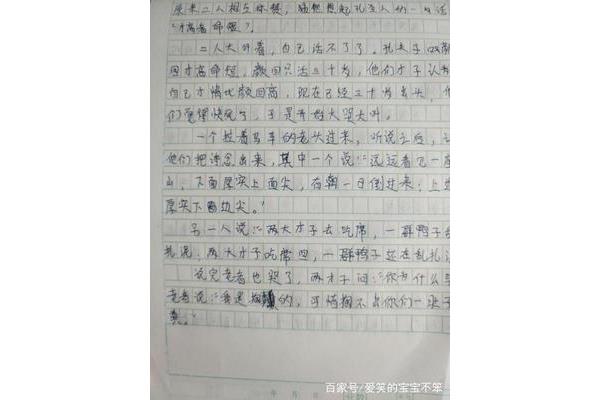 原来二人相互休想，猛然想起孔圣人的一句话
“才高者命短”。
二人大叫着，自己活不了了。孔夫子
因才高命短，颜回只活三十岁，他们才子认
自己才情比颜回高，现在已经三十岁出头，
们觉得快死了，于是开始大哭大叫。
一个拉着马车的老头过来，听说之后，
他们把诗念出来，其中一个说：“远远看见一座
山，下面厚实上面尖，有朝一日倒过来，上
厚实下边尖。”
另一人说：“两大才子去吃席，一群鸭子
扎泥，两大才子吃席回，一群鸭子还在乱扎
说完老者也哭了，两才子问：“你为什么
老者说：“我是的，可惜不出你们一块
粪。”
年 月 日
百家号/爱笑的宝宝不笨